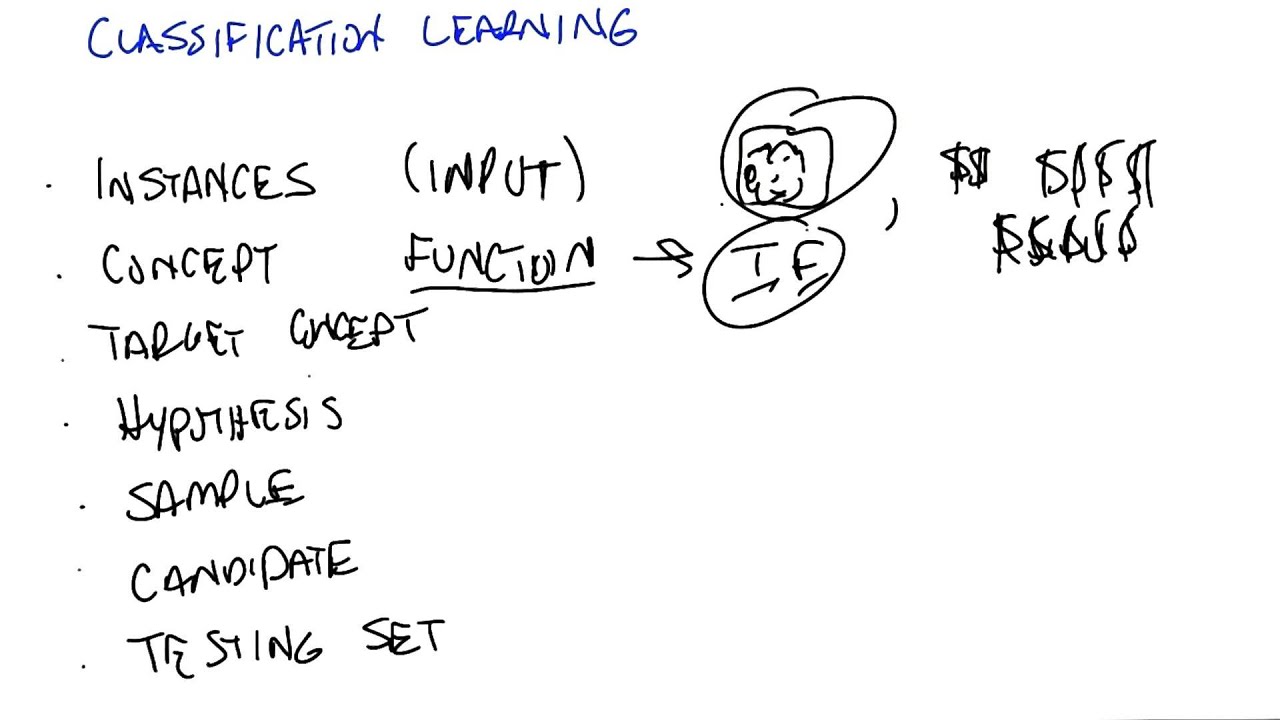 CLASSIFICATION LEARNING
INSTANCES (INPUT) , $$ $$$$
CONCEPT FUNCTION → T F $$$$$
TARGET CONCEPT
HYPOTHESIS
SAMPLE
CANDIDATE
TESTING SET